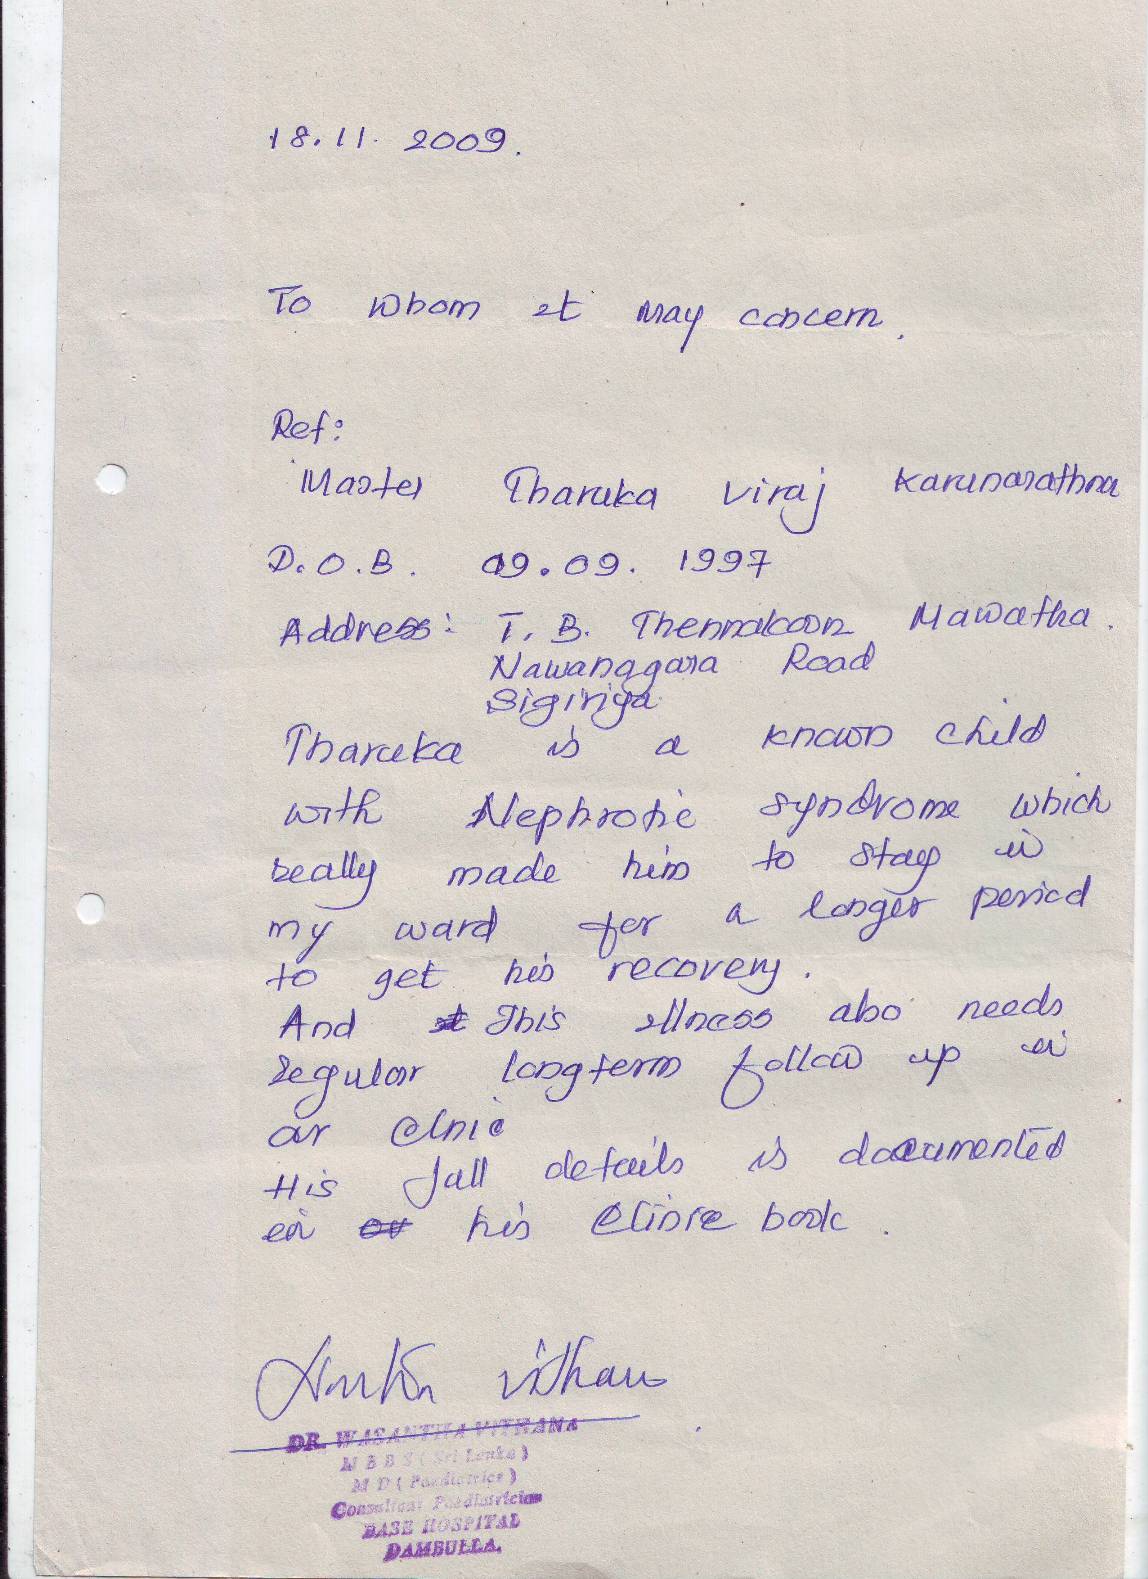 18.11. 2009.
To Whom It May concern.
Ref:
Master Tharuka Viraj Karunarathna
D.O.B. 09.09. 1997
Address: T. B. Thennakoon Mawatha.
Nawanaggara Road
Sigiriya
Tharuka is a known child
with Nephrotic syndrome which
really made him to stay in
my ward for a longer period
to get his recovery.
And This illness also needs
regular longterm follow up in
our clinic
His full details is documented
in his Clinic book.
DR. WASANTHA VITHANA
M B B S ( Sri Lanka )
M D ( Paediatrics )
Consultant Paediatrician
BASE HOSPITAL
DAMBULLA.